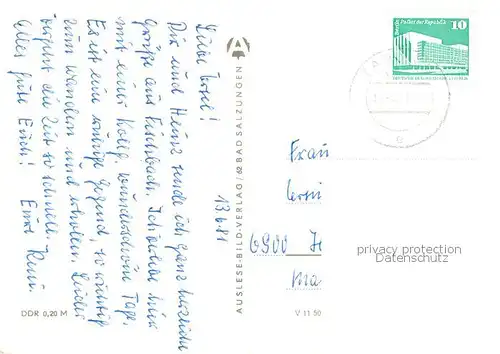 13.6.81
Liebe Irsel!
Dir und Heinz sende ich ganz herzliche
Grüße aus Fischbach. Ich verlebe hier
mit einer Kolleg. wunderschöne Tage.
Es ist eine ruhige Gegend, so richtig
zum wandern und erholen. Leider
vergeht die Zeit so schnell.
Alles gute Euch! Eure
DDR 0,20 M
AUSLESE-BILD-VERLAG / 62 BAD SALZUNGEN
V 11 50
Berlin Palast der Republik
10
DEUTSCHE DEMOKRATISCHE REPUBLIK
Frau
6900 Je
privacy protection
Datenschutz